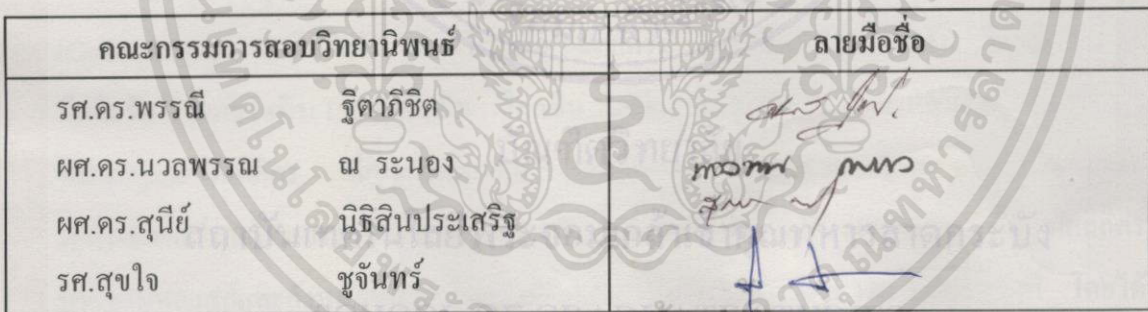 คณะกรรมการสอบวิทยานิพนธ์ ลายมือชื่อ
รศ.ดร.พรรณี ฐิตาภิชิต
ผศ.ดร.นวลพรรณ ณ ระนอง
ผศ.ดร.สุนีย์ นิธิสินประเสริฐ
รศ.สุขใจ ชูจันทร์